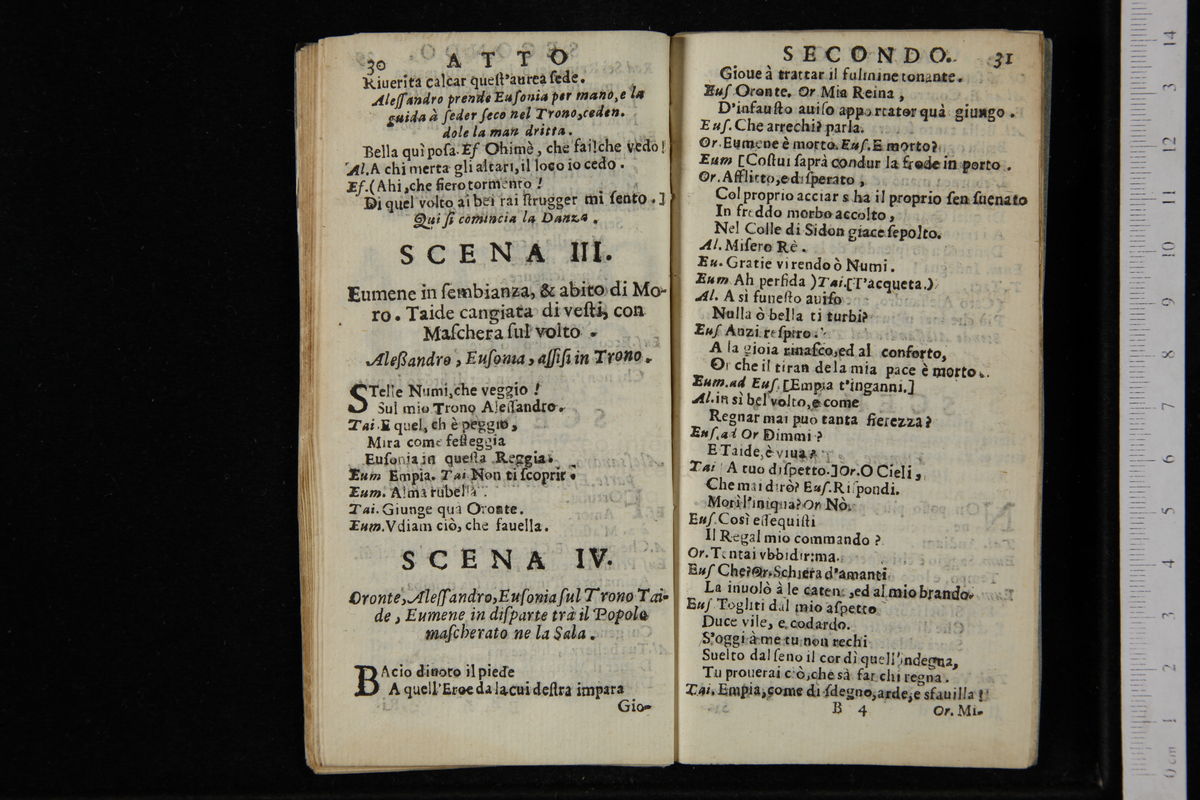 30 ATTO
Riuerita calcar quest'aurea sede.
Alessandro prende Eusonia per mano, e la
guida à seder seco nel Trono, ceden-
dole la man dritta.
Bella quì posa. Ef Ohimè, che fai! che vedo!
Al. A chi merta gli altari, il loco io cedo.
Ef. (Ahi, che fiero tormento!
Di quel volto ai bei rai strugger mi sento.]
Qui si comincia la Danza.
SCENA III.
Eumene in sembianza, & abito di Mo-
ro. Taide cangiata di vesti, con
Maschera sul volto.
Aleßandro, Eusonia, assisi in Trono.
STelle Numi, che veggio!
Sul mio Trono Alessandro.
Tai. E quel, ch è peggio,
Mira come festeggia
Eusonia in questa Reggia.
Eum Empia. Tai Non ti scoprir.
Eum. Alma rubella.
Tai. Giunge quà Oronte.
Eum. Vdiam ciò, che fauella.
SCENA IV.
Oronte, Alessandro, Eusonia sul Trono Tai-
de, Eumene in disparte trà il Popolo
mascherato ne la Sala.
BAcio dinoto il piede
A quell'Eroe da la cui destra impara
Gio-
SECONDO. 31
Gioue à trattar il fulmine tonante.
Eus Oronte. Or Mia Reina,
D'infausto auiso apportator quà giungo.
Eus. Che arrechi? parla.
Or. Eumene è morto. Eus. E morto?
Eum [Costui saprà condur la frode in porto.
Or. Afflitto, e disperato,
Col proprio acciar s ha il proprio sen suenato
In freddo morbo accolto,
Nel Colle di Sidon giace sepolto.
Al. Misero Rè.
Eu. Gratie vi rendo ò Numi.
Eum Ah perfida) Tai. [T'acqueta.)
Al. A sì funesto auiso
Nulla ò bella ti turbi?
Eus Anzi respiro.
A la gioia rinasco, ed al conforto,
Or che il tiran de la mia pace è morto.
Eum. ad Eus. [Empia t'inganni.]
Al. in sì bel volto, e come
Regnar mai puo tanta fierezza?
Eus. ad Or Dimmi?
E Taide, è viua?
Tai A tuo dispetto.] Or. O Cieli,
Che mai dirò? Eus. Rispondi.
Morì l'iniqua? Or Nò.
Eus. Così essequisti
Il Regal mio commando?
Or. Tentai vbbidir; ma.
Eus Che? Or. Schiera d'amanti
La inuolò à le catene, ed al mio brando.
Eus Togliti dal mio aspetto
Duce vile, e codardo.
S'oggi à me tu non rechi
Suelto dal seno il cor di quell'indegna,
Tu prouerai ciò, che sà far chi regna.
Tai. Empia, come di sdegno, arde, e sfauilla!
B 4 Or. Mi-